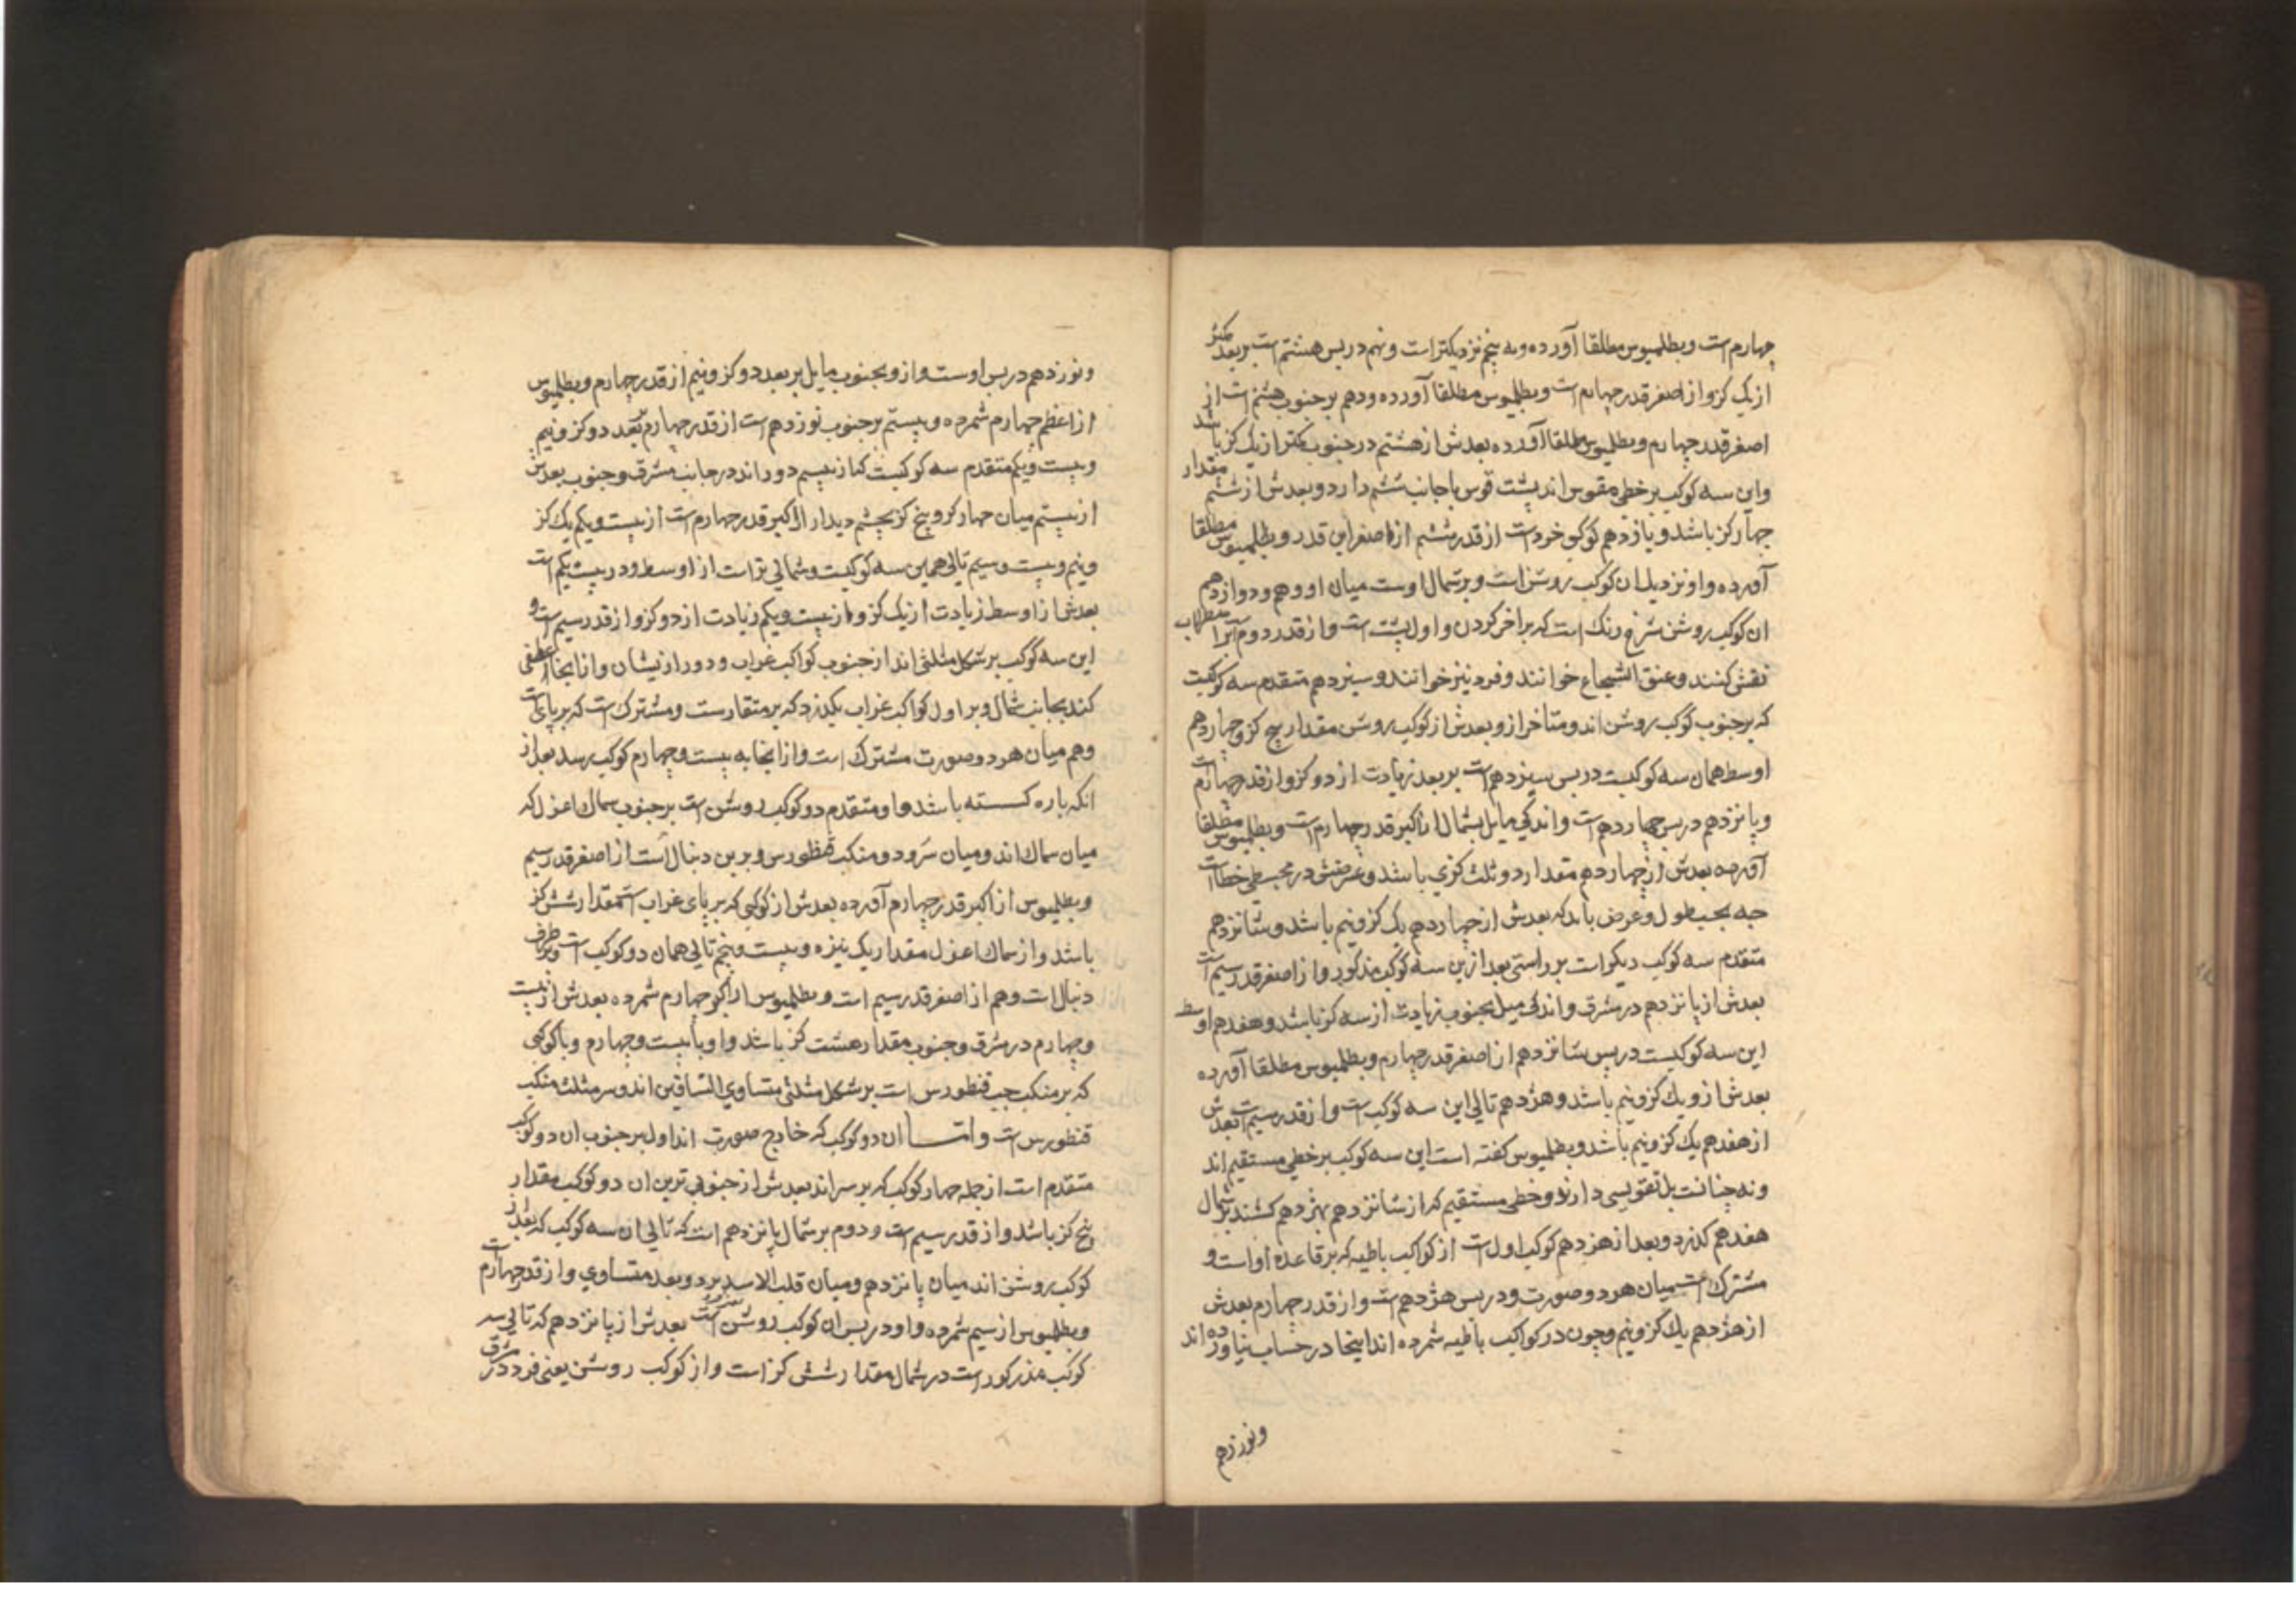 چهارم است و بطلمیوس مطلقا آورده و به پنجم نزدیکتر است و نهم در پس هشتم است بر بعد کمتر
از یک کز و از اصغر قدر چهارم است و بطلمیوس مطلقا آورده و دهم بر جنوب هشتم است از
اصغر قدر چهارم و بطلمیوس مطلقا آورده بعدش از هشتم در جنوب کمتر از یک کز باشد
و این سه کوکب بر خطی مقوس اند پشت قوس با جانب ششم دارد و بعدش از ششم مقدار
چهار کز باشد و یازدهم کوکبی خرد است از قدر ششم از اصغر این قدر و بطلمیوس مطلقا
آورده و او نزدیک ان کوکب روشن است و بر شمال اوست میان او و دهم و دوازدهم
ان کوکب روشن سرخ رنک است که بر اخر کردن و اول پشت است و از قدر دوم آنرا بر اسطرلاب
نقش کنند و عنق الشجاع خوانند و فرد نیز خوانند و سیزدهم متقدم سه کوکبیت
که بر جنوب کوکب روشن اند و متاخر ازو بعدش از کوکب روشن مقدار پنج کز و چهاردهم
اوسط همان سه کوکبیت در پس سیزدهم است بر بعد زیادت از دو کز و از قدر چهارم است
و پانزدهم در پس چهاردهم است و اندکی مایل بشمال از اکبر قدر چهارم است و بطلمیوس مطلقا
آورده بعدش از چهاردهم مقدار دو ثلث کزی باشد و عرضش در مجسطی خطا است
چه بحسب طول و عرض باید که بعدش از چهاردهم یک کز و نیم باشد و شانزدهم
متقدم سه کوکب دیکر است بر راستی بعد ازین سه کوکب مذکور و از اصغر قدر سیم است
بعدش از پانزدهم در مشرق و اندکی میل بجنوب زیادت از سه کز باشد و هفدهم اوسط
این سه کوکبیت در پس شانزدهم از اصغر قدر چهارم و بطلمیوس مطلقا آورده
بعدش ازو یک کز و نیم باشد و هژدهم تالی این سه کوکب است و از قدر سیم است بعدش
از هفدهم یک کز و نیم باشد و بطلمیوس کفته است این سه کوکب بر خطی مستقیم اند
و نه چنانست بل تقویسی دارند و خطی مستقیم که از شانزدهم بهژدهم کشند بر شمال
هفدهم کذرد و بعد از هژدهم کوکب اول است از کواکب باطیه که بر قاعده او است و
مشترک است میان هر دو صورت و در پس هژدهم است و از قدر چهارم بعدش
از هژدهم یک کز و نیم و چون در کواکب باطیه شمرده اند اینجا در حساب نیاورده اند
ونوزدهم
و نوزدهم در پس اوست و ازو بجنوب مایل بر بعد دو کز و نیم از قدر چهارم و بطلمیوس
از اعظم چهارم شمرده و بیستم بر جنوب نوزدهم است از قدر چهارم ببعد دو کز و نیم
و بیست و یکم متقدم سه کوکبیت که از بیستم دور اند در جانب مشرق و جنوب بعدش
از بیستم میان چهار کز و پنج کز بچشم دیدار از اکبر قدر چهارم است از بیست و یکم یک کز
و نیم و بیست و سیم تالی همین سه کوکبیت و شمالی تر است از اوسط و در پیش یکم است
بعدش از اوسط زیادت از یک کز و از بیست و یکم زیادت از دو کز و از قدر سیم است و
این سه کوکب بر شکل مثلثی اند از جنوب کواکب غراب و دور ازیشان و از اینجا عطفی
کند بجانب شمال و بر اول کواکب غراب بکذرد که بر منقار است و مشترک است که بر پای است
و هم میان هر دو صورت مشترک است و از انجا به بیست و چهارم کوکب رسد بعد از
انکه باره کسسته باشد و او متقدم دو کوکب روشن است بر جنوب سماک اعزل که
میان سماک اند و میان سر و دو منکب قنطورس و برین دنبال است از اصغر قدر سیم
و بطلمیوس از اکبر قدر چهارم آورده بعدش از کوکبی که بر پای غراب است مقدار شش کز
باشد و از سماک اعزل مقدار یک نیزه و بیست و پنجم تالی همان دو کوکب است و بر طرف
دنبال است و هم از اصغر قدر سیم است و بطلمیوس از اکبر چهارم شمرده بعدش از بیست
و چهارم در مشرق و جنوب مقدار هشت کز باشد و او با بیست و چهارم و با کوکبی
که بر منکب چپ قنطورس است بر شکل مثلثی متساوی الساقین اند و سر مثلث منکب
قنطورس است و امــا ان دو کوکب که خارج صورت اند اول بر جنوب ان دو کوکب
متقدم است از جمله چهار کوکب که بر سر اند بعدش از جنوبی ترین ان دو کوکب مقدار
پنج کز باشد و از قدر سیم است و دوم بر شمال پانزدهم است که تالی ان سه کوکب که بعد از
کوکب روشن اند میان پانزدهم و میان قلب الاسد بر دو بعد متساوی و از قدر چهارم است
و بطلمیوس از سیم شمرده و او در پس ان کوکب روشن است بعدش از پانزدهم که تالی سه
کوکب مذکور است در شمال مقدار شش کز است و از کوکب روشن یعنی فرد در شرق